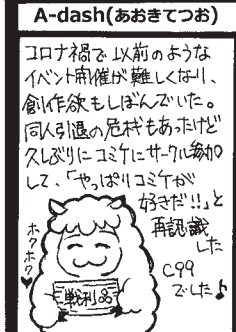 A-dash(あおきてつお)
コロナ禍で以前のような
イベント開催が難しくなり、
創作欲もしぼんでいた。
同人引退の危機もあったけど
久しぶりにコミケにサークル参加
して、「やっぱりコミケが
好きだ!!」と
再認識
した
C99
でした♪
ホクホク♥
戦利品